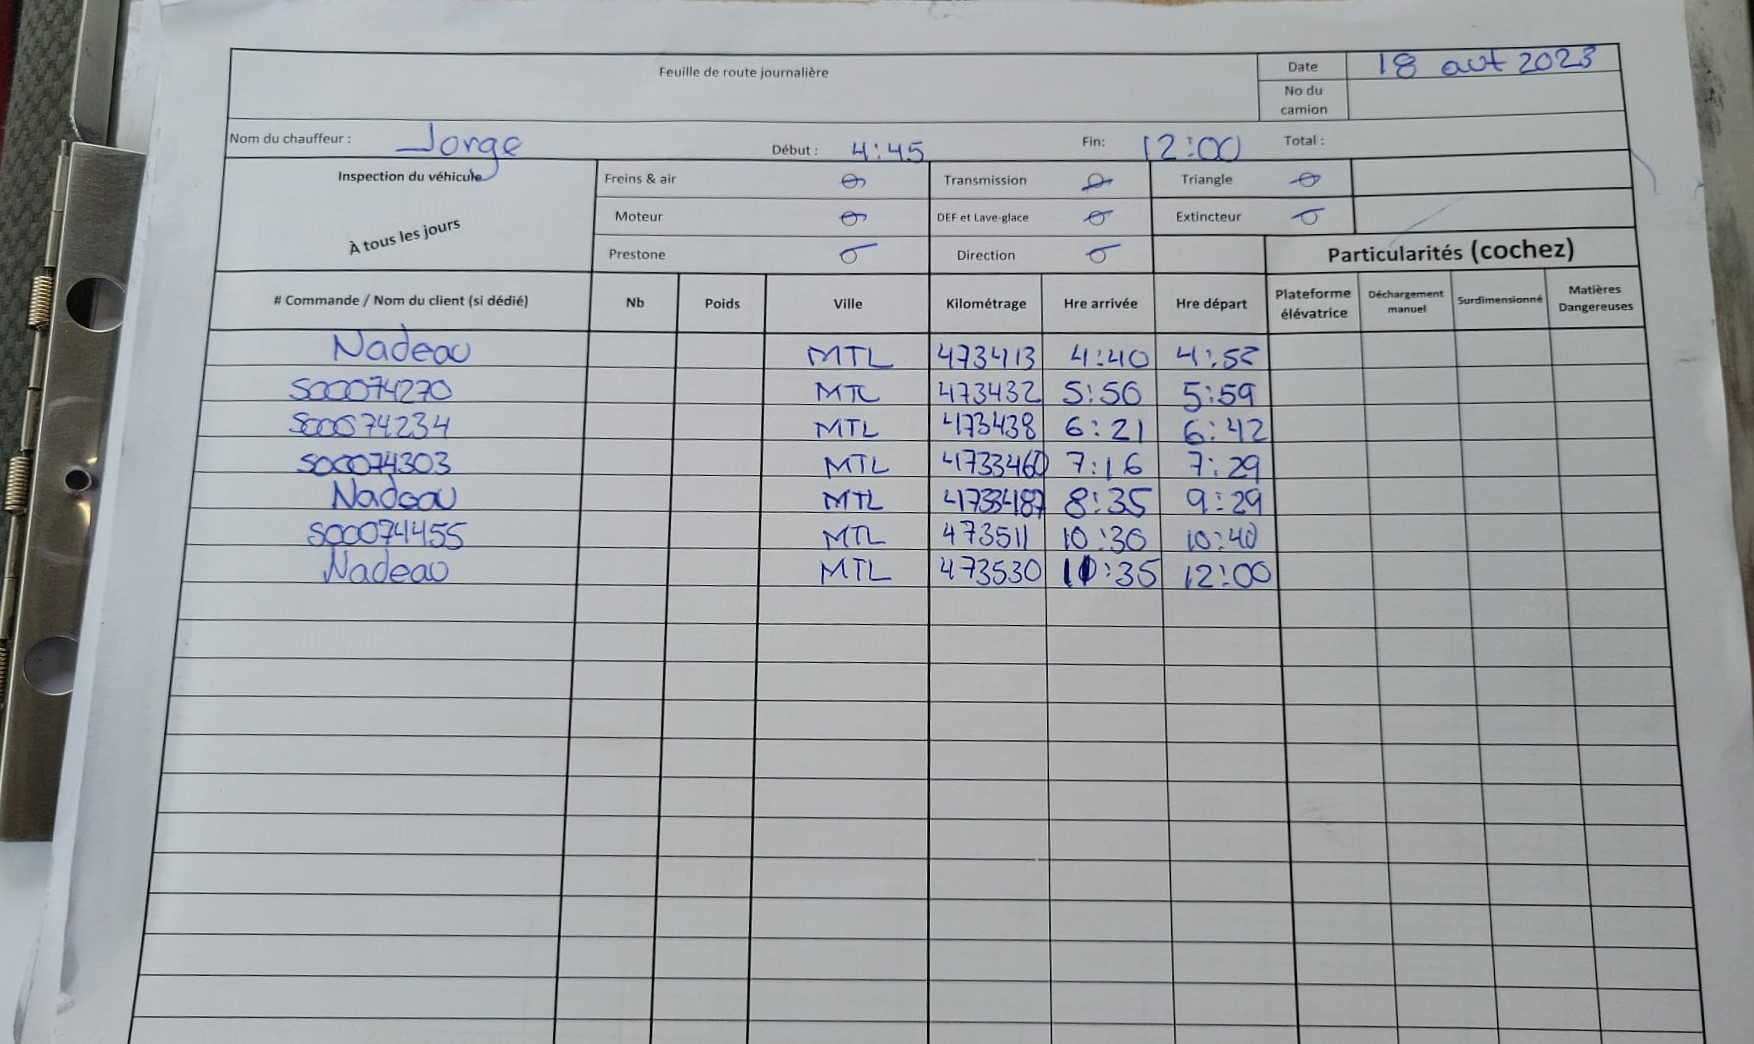 Feuille de route journalière
Date 18 aut 2023
No du camion
Nom du chauffeur : Jorge Début : 4:45 Fin: 12:00 Total :
Inspection du véhicule Freins & air Transmission Triangle
À tous les jours Moteur DEF et Lave-glace Extincteur
Prestone Direction Particularités (cochez)
# Commande / Nom du client (si dédié) Nb Poids Ville Kilométrage Hre arrivée Hre départ Plateforme élévatrice Déchargement manuel Surdimensionné Matières Dangereuses
Nadeau MTL 473413 4:40 4:52
S00074270 MTL 473432 5:50 5:59
S00074234 MTL 473438 6:21 6:42
S00074303 MTL 4733460 7:16 7:29
Nadeau MTL 8:35 9:29
S00074455 MTL 473511 10:30 10:40
Nadeau MTL 473530 12:00